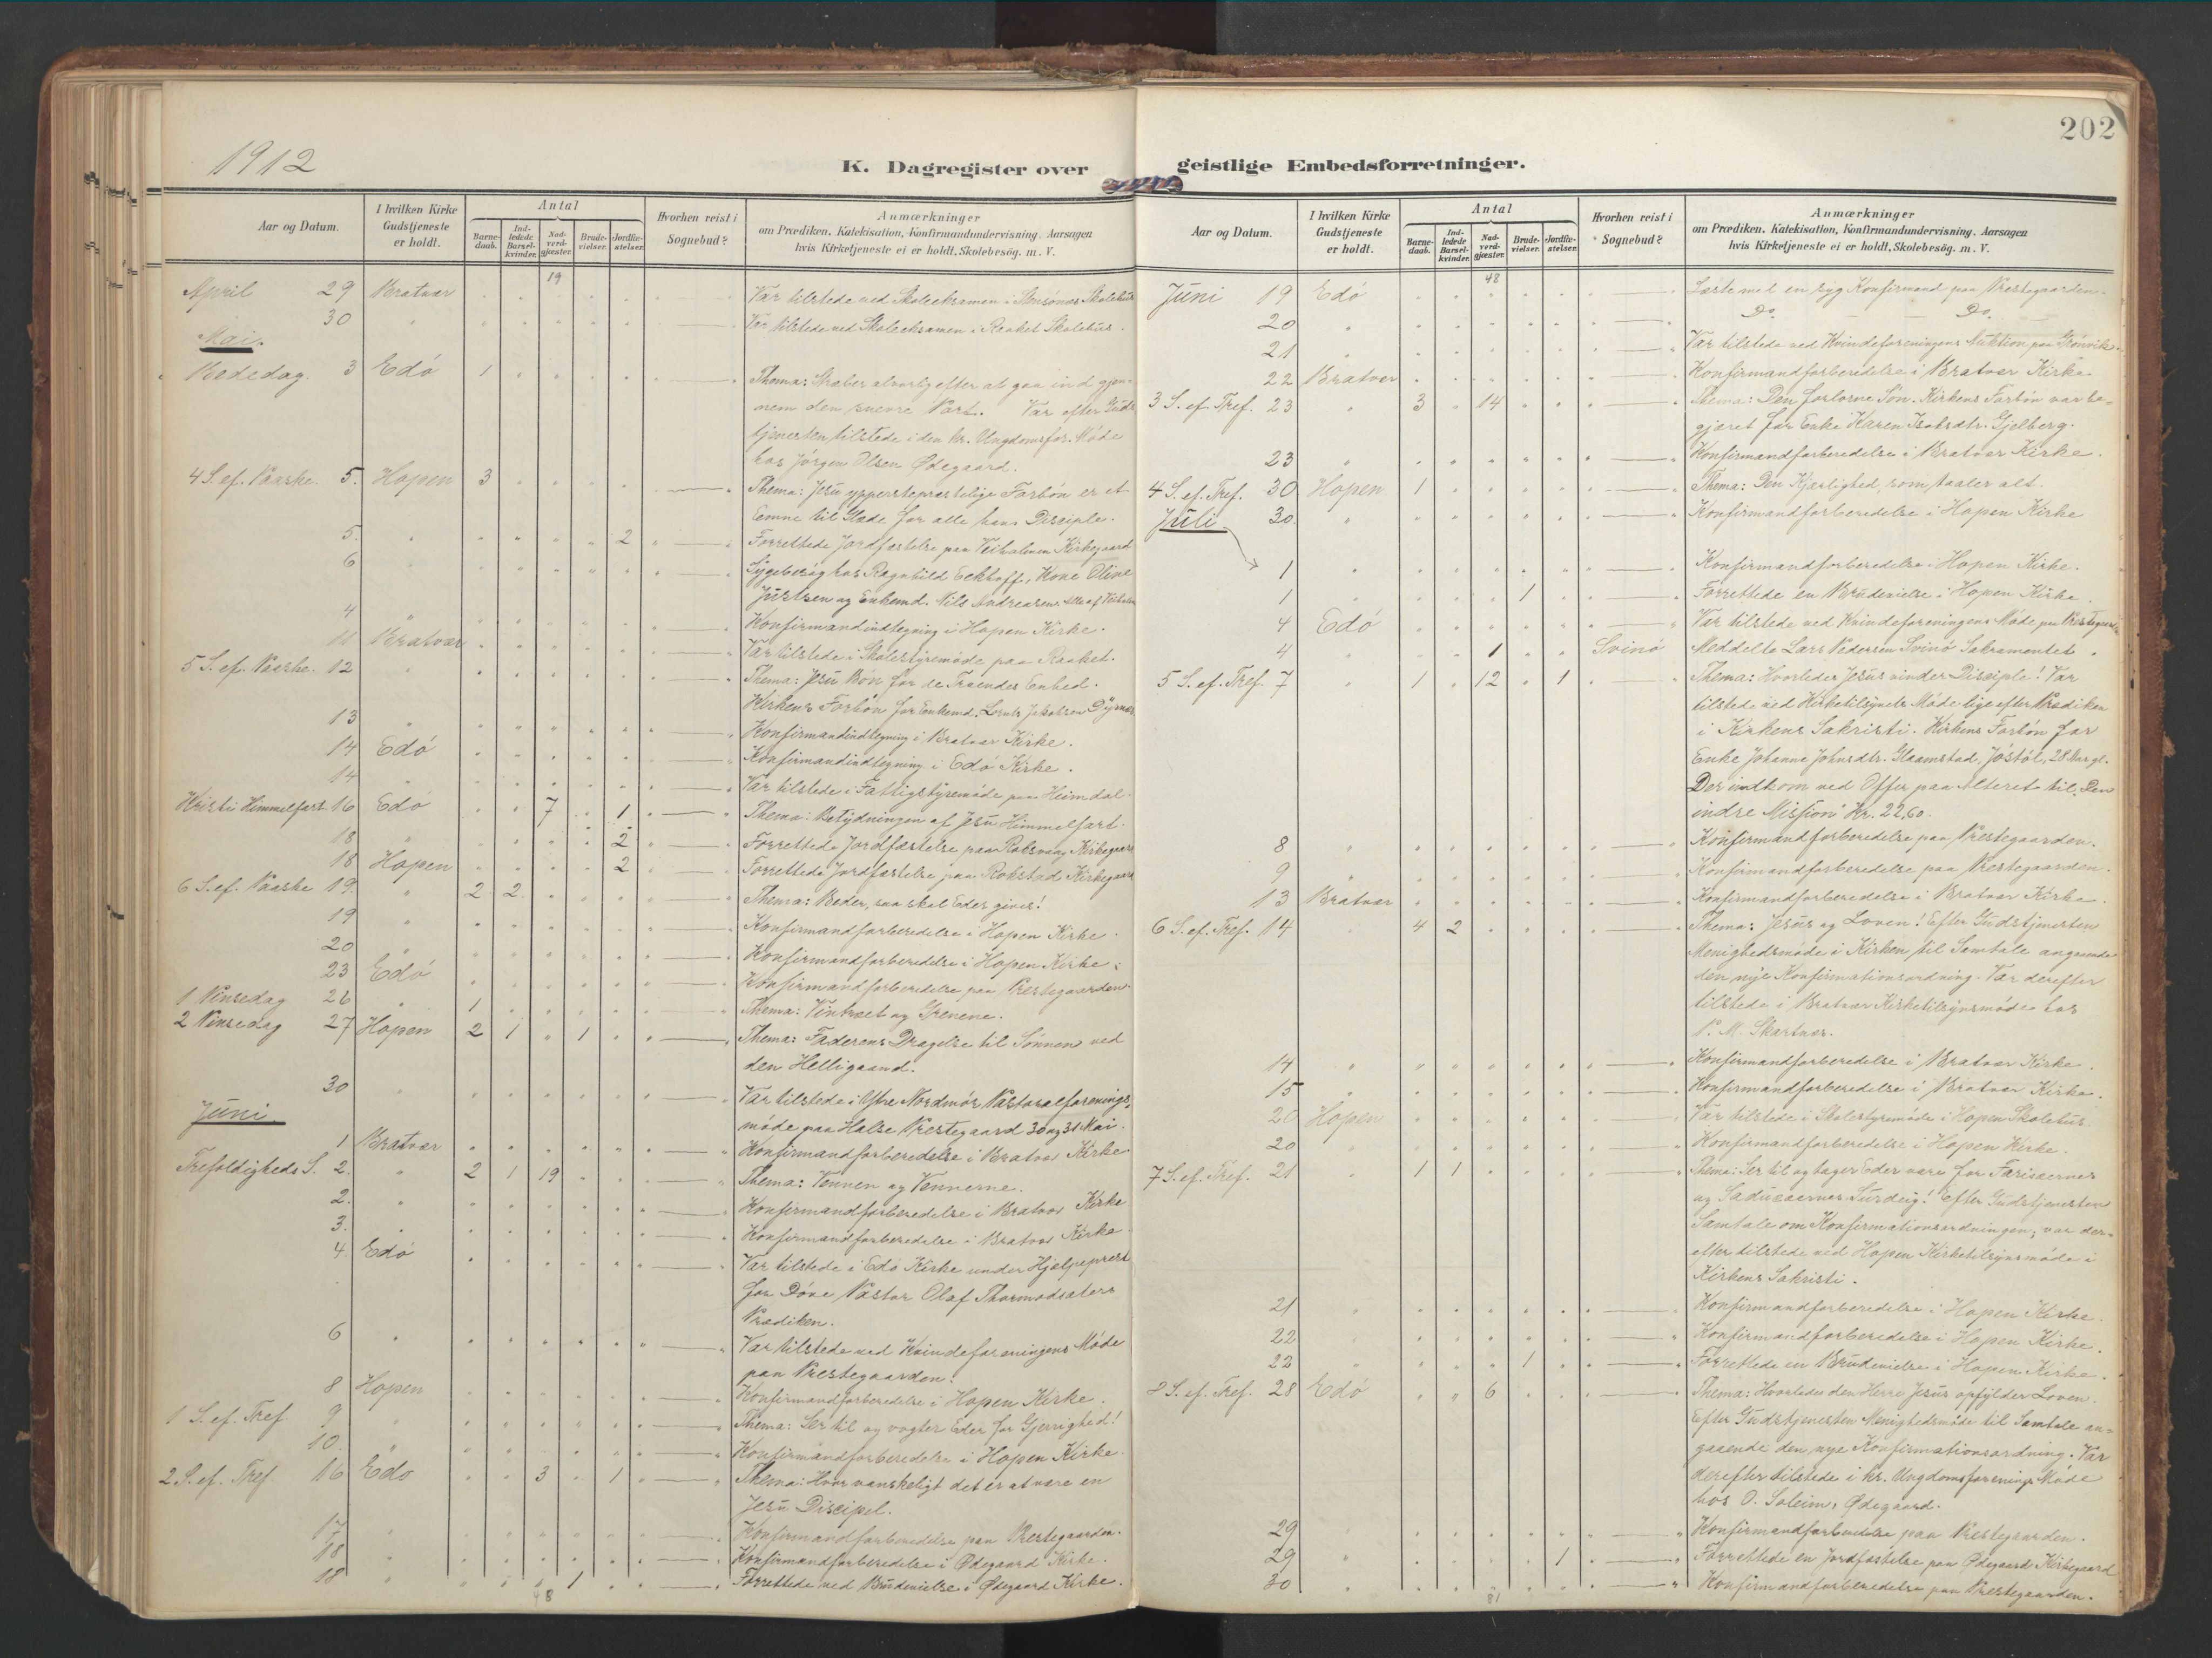 1912
K. Dagregister over
Aar og Datum.
I hvilken Kirke Gudstjeneste er holdt.
Antal
Barne-daab.
Ind-ledede Barsel-kvinder.
Nad-verd-gjæster.
Brude-vielser.
Jordfæ-stelser.
Hvorhen reist i Sognebud?
Anmærkninger
om Prædiken, Katekisation, Konfirmandundervisning, Aarsagen
hvis Kirketjeneste ei er holdt, Skolebesög. m. V.
19
April 29 Bratvær Var tilstede ved Skoleeksamen i Skolehus
30 " Var tilstede ved Skoleeksamen i Raaket Skolehus.
Mai.
Bededag. 3 Edö 1 Thema: Stræber alvorlig efter at gaa ind gjen-
nem den snevre Port. Var efter Guds
tjenesten tilstede i den kr. Ungdomsfor. Möde
hos Jörgen Olsen Ødegaard.
4 S. ef. Paaske. 5. Hopen 3 Thema: Jesu ypperstepræstelige Forbön er et
Emne til Glæde for alle hans Disciple.
5. " 2 Forrettede Jordfæstelse paa Veiholmen Kirkegaard
6 Sygebesög hos Ragnhild Eckhoff, Kone Oline
Justsen og Enkemd. Nils Andreasen, alle af Veiholm
4 " Konfirmandindtegning i Hopen Kirke.
11 Bratvær Var tilstede i Skolestyremöde paa Raaket.
5 S. ef. Paaske. 12 " Thema: Jesu Bön for de Troendes Enhed.
Kirkens Forbön for Enkemd. Lorents Jakobsen Dyrnes
13 " Konfirmandindtegning i Bratvær Kirke.
14 Edö Konfirmandindtegning i Edö Kirke.
14 " Var tilstede i Fattigstyremöde paa Heimdal.
Kristi Himmelfart 16 Edö 7 1 Thema: Betydningen af Jesu Himmelfart.
18 " 2 Forrettede Jordfæstelse paa Kirkegaard
18 Hopen 2 Forrettede Jordfæstelse paa Rokstad Kirkegaard
6 S. ef. Paaske 19. " 2 2 Thema: Beder, saa skal Eder gives!
19 " Konfirmandforberedelse i Hopen Kirke.
20 " Konfirmandforberedelse i Hopen Kirke.
23 Edö Konfirmandforberedelse paa Prestegaarden.
1 Pinsedag 26 " 1 Thema: Vintræet og Grenene.
2 Pinsedag 27 Hopen 2 1 " 1 Thema: Faderens Dragelse til Sönnen ved
den Helligaand.
30 " Var tilstede i Ytre Nordmör Pastoralforenings-
möde paa Halse Prestegaard 30 og 31 Mai.
Juni.
1 Bratvær Konfirmandforberedelse i Bratvær Kirke.
Trefoldigheds S. 2. " 2 1 19 Thema: Vennen og Vennerne.
2. " Konfirmandforberedelse i Bratvær Kirke
3. " Konfirmandforberedelse i Bratvær Kirke.
4. Edö Var tilstede i Edö Kirke under Hjælpeprest
for Döve Pastor Olaf Thormodsæters
Prædiken.
6 " Var tilstede ved Kvindeforeningens Möde
paa Prestegaarden.
8 Hopen Konfirmandforberedelse i Hopen Kirke.
1 S. ef. Tref. 9 " Thema: Ser til og vogter Eder for Gjerrighed!
10. " Konfirmandforberedelse i Hopen Kirke.
2 S. ef. Tref. 16 Edö 3 1 Thema: Hvor vanskeligt det er at være en
Jesu Discipel.
17 " Konfirmandforberedelse paa Prestegaarden.
18 " Konfirmandforberedelse i Ødegaard Kirke.
18 " 1 Forrettede ved Brudevielse i Ødegaard Kirke.
48
202
geistlige Embedsforretninger.
Aar og Datum.
I hvilken Kirke Gudstjeneste er holdt.
Antal
Barne-daab.
Ind-ledede Barsel-kvinder.
Nad-verd-gjæster.
Brude-vielser.
Jordfæ-stelser.
Hvorhen reist i Sognebud?
Anmærkninger
om Prædiken, Katekisation, Konfirmandundervisning, Aarsagen
hvis Kirketjeneste ei er holdt, Skolebesög. m. V.
48
Juni 19 Edö Læste med en syg Konfirmand paa Prestegaarden.
20 " Do. Do.
21 " Var tilstede ved Kvindeforeningens Auktion paa Grönvik.
22 Bratvær Konfirmandforberedelse i Bratvær Kirke
3 S. ef. Tref. 23 " 3 14 Thema: Den forlorne Sön. Kirkens Forbön var be-
gjæret for Enke Karen Isaksdtr. Gjelberg.
23 " Konfirmandforberedelse i Bratvær Kirke.
4 S. ef. Tref. 30 Hopen 1 Thema: Den Kjærlighed, som taaler alt.
30. " Konfirmandforberedelse i Hopen Kirke
Juli
1 " Konfirmandforberedelse i Hopen Kirke.
1 " 1 Forrettede en Brudevielse i Hopen Kirke.
4 Edö Var tilstede ved Kvindeforeningens Möde paa Prestegaarden
4 " 1 Svinö Meddelte Lars Pedersen Svinö Sakramentet.
5 S. ef. Tref. 7 " 1 12 1 Thema: Hvorledes Jesus vinder Disciple! Var
tilstede ved Kirketilsynets Möde lige efter Prædiken
i Kirkens Sakristi. Kirkens Forbön for
Enke Johanna Johnsdtr. Glaamstad, Jöstöl, 28 Aar gl.
Der indkom ved Offer paa Alteret til "Den
indre Mission" Kr. 22,60.
8 " Konfirmandforberedelse paa Prestegaarden.
9 " Konfirmandforberedelse paa Prestegaarden.
13 Bratvær Konfirmandforberedelse i Bratvær Kirke.
6 S. ef. Tref. 14 " 4 2 Thema: Jesus og Loven! Efter Gudstjenesten
Menighedsmöde i Kirken til Samtale angaaende
den nye Konfirmationsordning. Var derefter
tilstede i Bratvær Kirketilsynsmöde hos
P. M. Skartnes.
14 " Konfirmandforberedelse i Bratvær Kirke.
15 " Konfirmandforberedelse i Bratvær Kirke.
20 Hopen Var tilstede i Skolestyremöde i Hopen Skolehus.
20 " Konfirmandforberedelse i Hopen Kirke.
7 S. ef. Tref. 21 " 1 1 Thema: Ser til og tager Eder vare for Farisæernes
og Sadusæernes Surdeig! Efter Gudstjenesten
Samtale om Konfirmationsordningen; var der-
efter tilstede ved Hopen Kirketilsynsmöde i
Kirkens Sakristi.
21 " Konfirmandforberedelse i Hopen Kirke.
22 " Konfirmandforberedelse i Hopen Kirke.
22 " 1 Forrettede en Brudevielse i Hopen Kirke.
8 S. ef. Tref. 28 Edö 6 Thema: Hvorledes den Herre Jesus opfylder Loven.
Efter Gudstjenesten Menighedsmöde til Samtale an-
gaaende den nye Konfirmationsordning. Var
derefter tilstede i kr. Ungdomsforenings Möde
hos O. Soleim, Ødegaard.
29 " Konfirmandforberedelse paa Prestegaarden.
29 " 1 Forrettede en Jordfæstelse paa Ødegaard Kirkegaard
30 " Konfirmandforberedelse paa Prestegaarden.
81